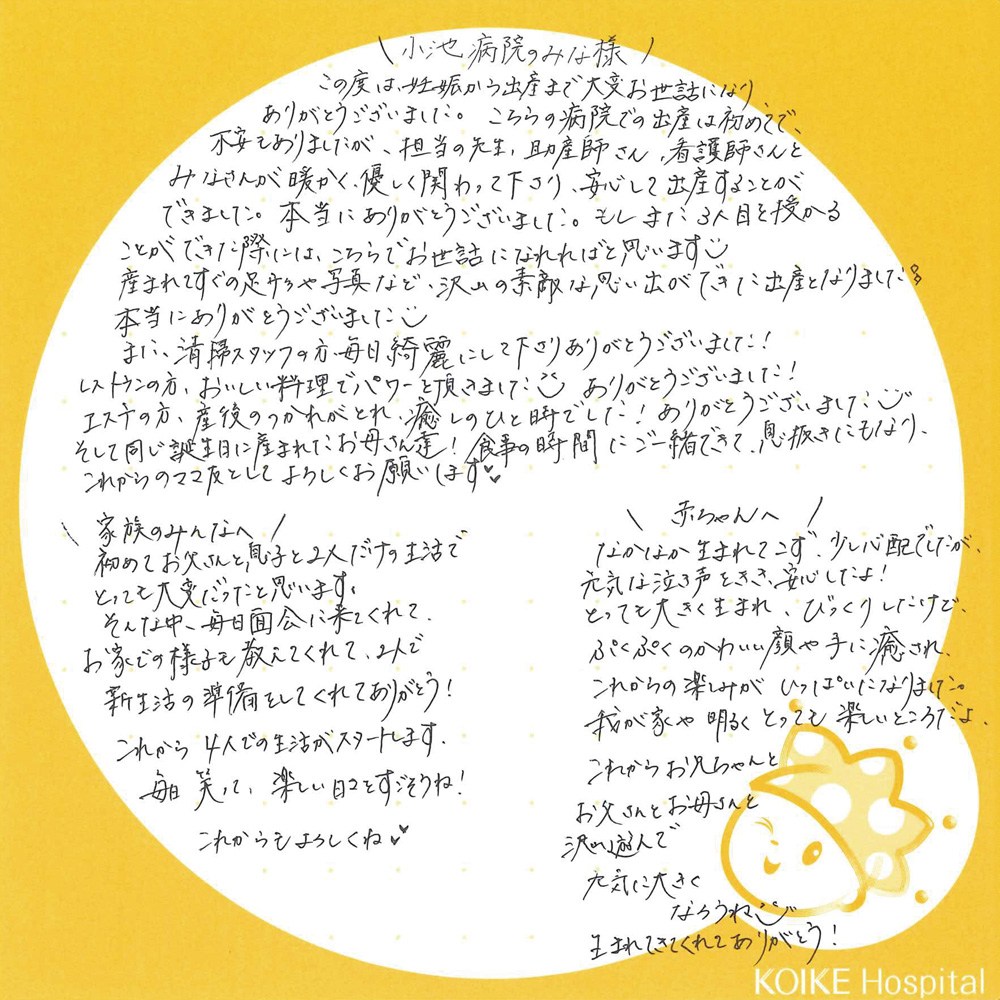 小池病院のみな様
この度は、妊娠から出産まで大変お世話になり
ありがとうございました。こちらの病院での出産は初めてで、
不安もありましたが、担当の先生、助産師さん、看護師さんと
みなさんが暖かく、優しく関わって下さり、安心して出産することが
できました。本当にありがとうございました。もしまた3人目を授かる
ことができた際には、こちらでお世話になれればと思います
産まれてすぐの足形や写真など、沢山の素敵な思い出ができた出産となりました
本当にありがとうございました
また、清掃スタッフの方、毎日綺麗にして下さりありがとうございました!
レストランの方、おいしい料理でパワーを頂きました ありがとうございました!
エステの方、産後のつかれがとれ、癒しのひと時でした!ありがとうございました
そして同じ誕生日に産まれたお母さん達!食事の時間にご一緒できて、息抜きにもなり、
これからのママ友としてよろしくお願いします♥
家族のみんなへ
初めてお父さんと息子と2人だけの生活で
とっても大変だったと思います。
そんな中、毎日面会に来てくれて、
お家での様子も教えてくれて、2人で
新生活の準備をしてくれてありがとう!
これから4人での生活がスタートします。
毎日笑って、楽しい日々をすごそうね!
これからもよろしくね♥
赤ちゃんへ
なかなか生まれてこず、少し心配でしたが、
元気な泣き声をきき、安心したよ!
とっても大きく生まれ、びっくりしたけど、
ぷくぷくのかわいい顔や手に癒され、
これからの楽しみがいっぱいになりました。
我が家や明るくとっても楽しいところだよ、
これからお兄ちゃんと
お父さんとお母さんと
沢山遊んで
元気に大きく
なろうね
生まれてきてくれてありがとう!
KOIKE Hospital